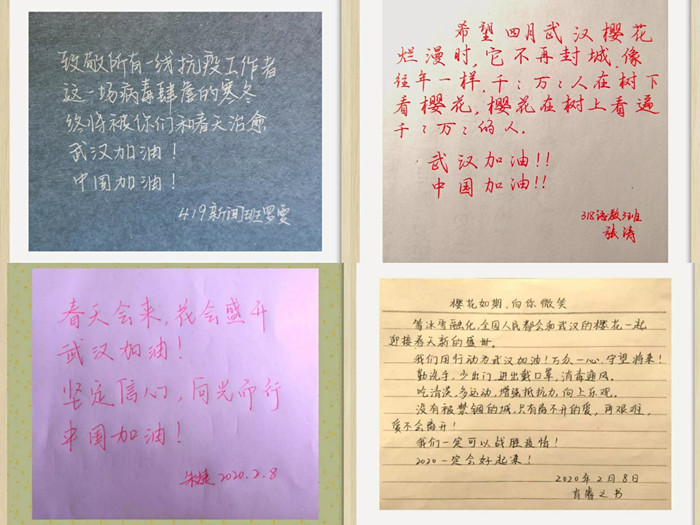 致敬所有一线抗疫工作者
这一场病毒肆虐的寒冬
终将被你们和春天治愈
武汉加油！
中国加油！
419新闻班罗雯
希望四月武汉樱花
烂漫时，它不再封城，像
往年一样，千千万万人在树下
看樱花，樱花在树上看遍
千千万万的人．
武汉加油!!
中国加油!!
318语教3班
张涛
春天会来，花会盛开
武汉加油！
坚定信心，同光而行
中国加油！
2020.2.8
樱花如期，向你微笑
等冰雪融化，全国人民都会和武汉的樱花一起
迎接春天新的盛世。
我们用行动为武汉加油！万众一心，守望将来！
勤洗手，少出门，进出戴口罩，消毒通风。
吃清淡，多运动，增强抵抗力，向上乐观。
没有被禁锢的城，只有离不开的爱，再艰难，
爱不会离开！
我们一定可以战胜疫情！
2020一定会好起来！
2020年2月8日
肖睿之书